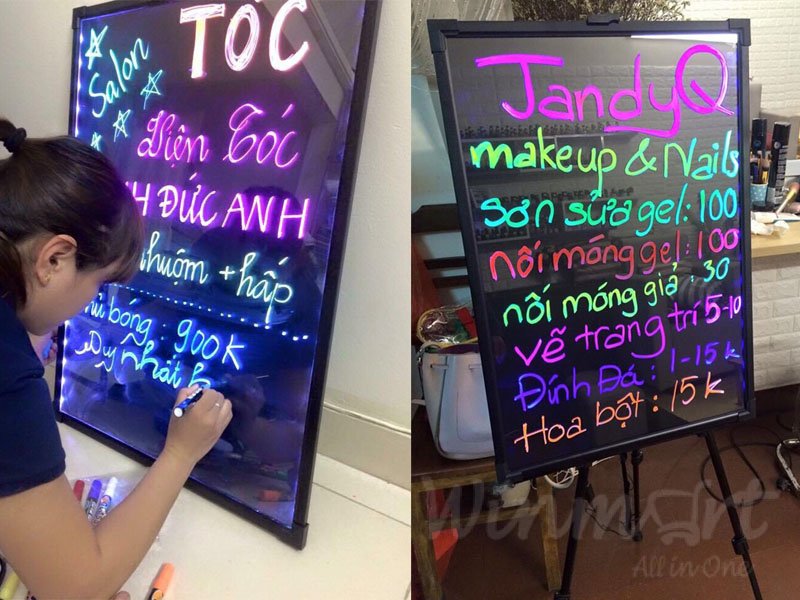 TÓC
Salon
Viện Tóc
H ĐỨC ANH
nhuộm + hấp
bóng: 900K
Duy nhất
JandyQ
makeup & Nails
sơn sửa gel: 100
nối móng gel: 100
nối móng giả: 30
vẽ trang trí 5-10
Đính Đá: 1-15k
Hoa bột: 15k
Winmart
All in One